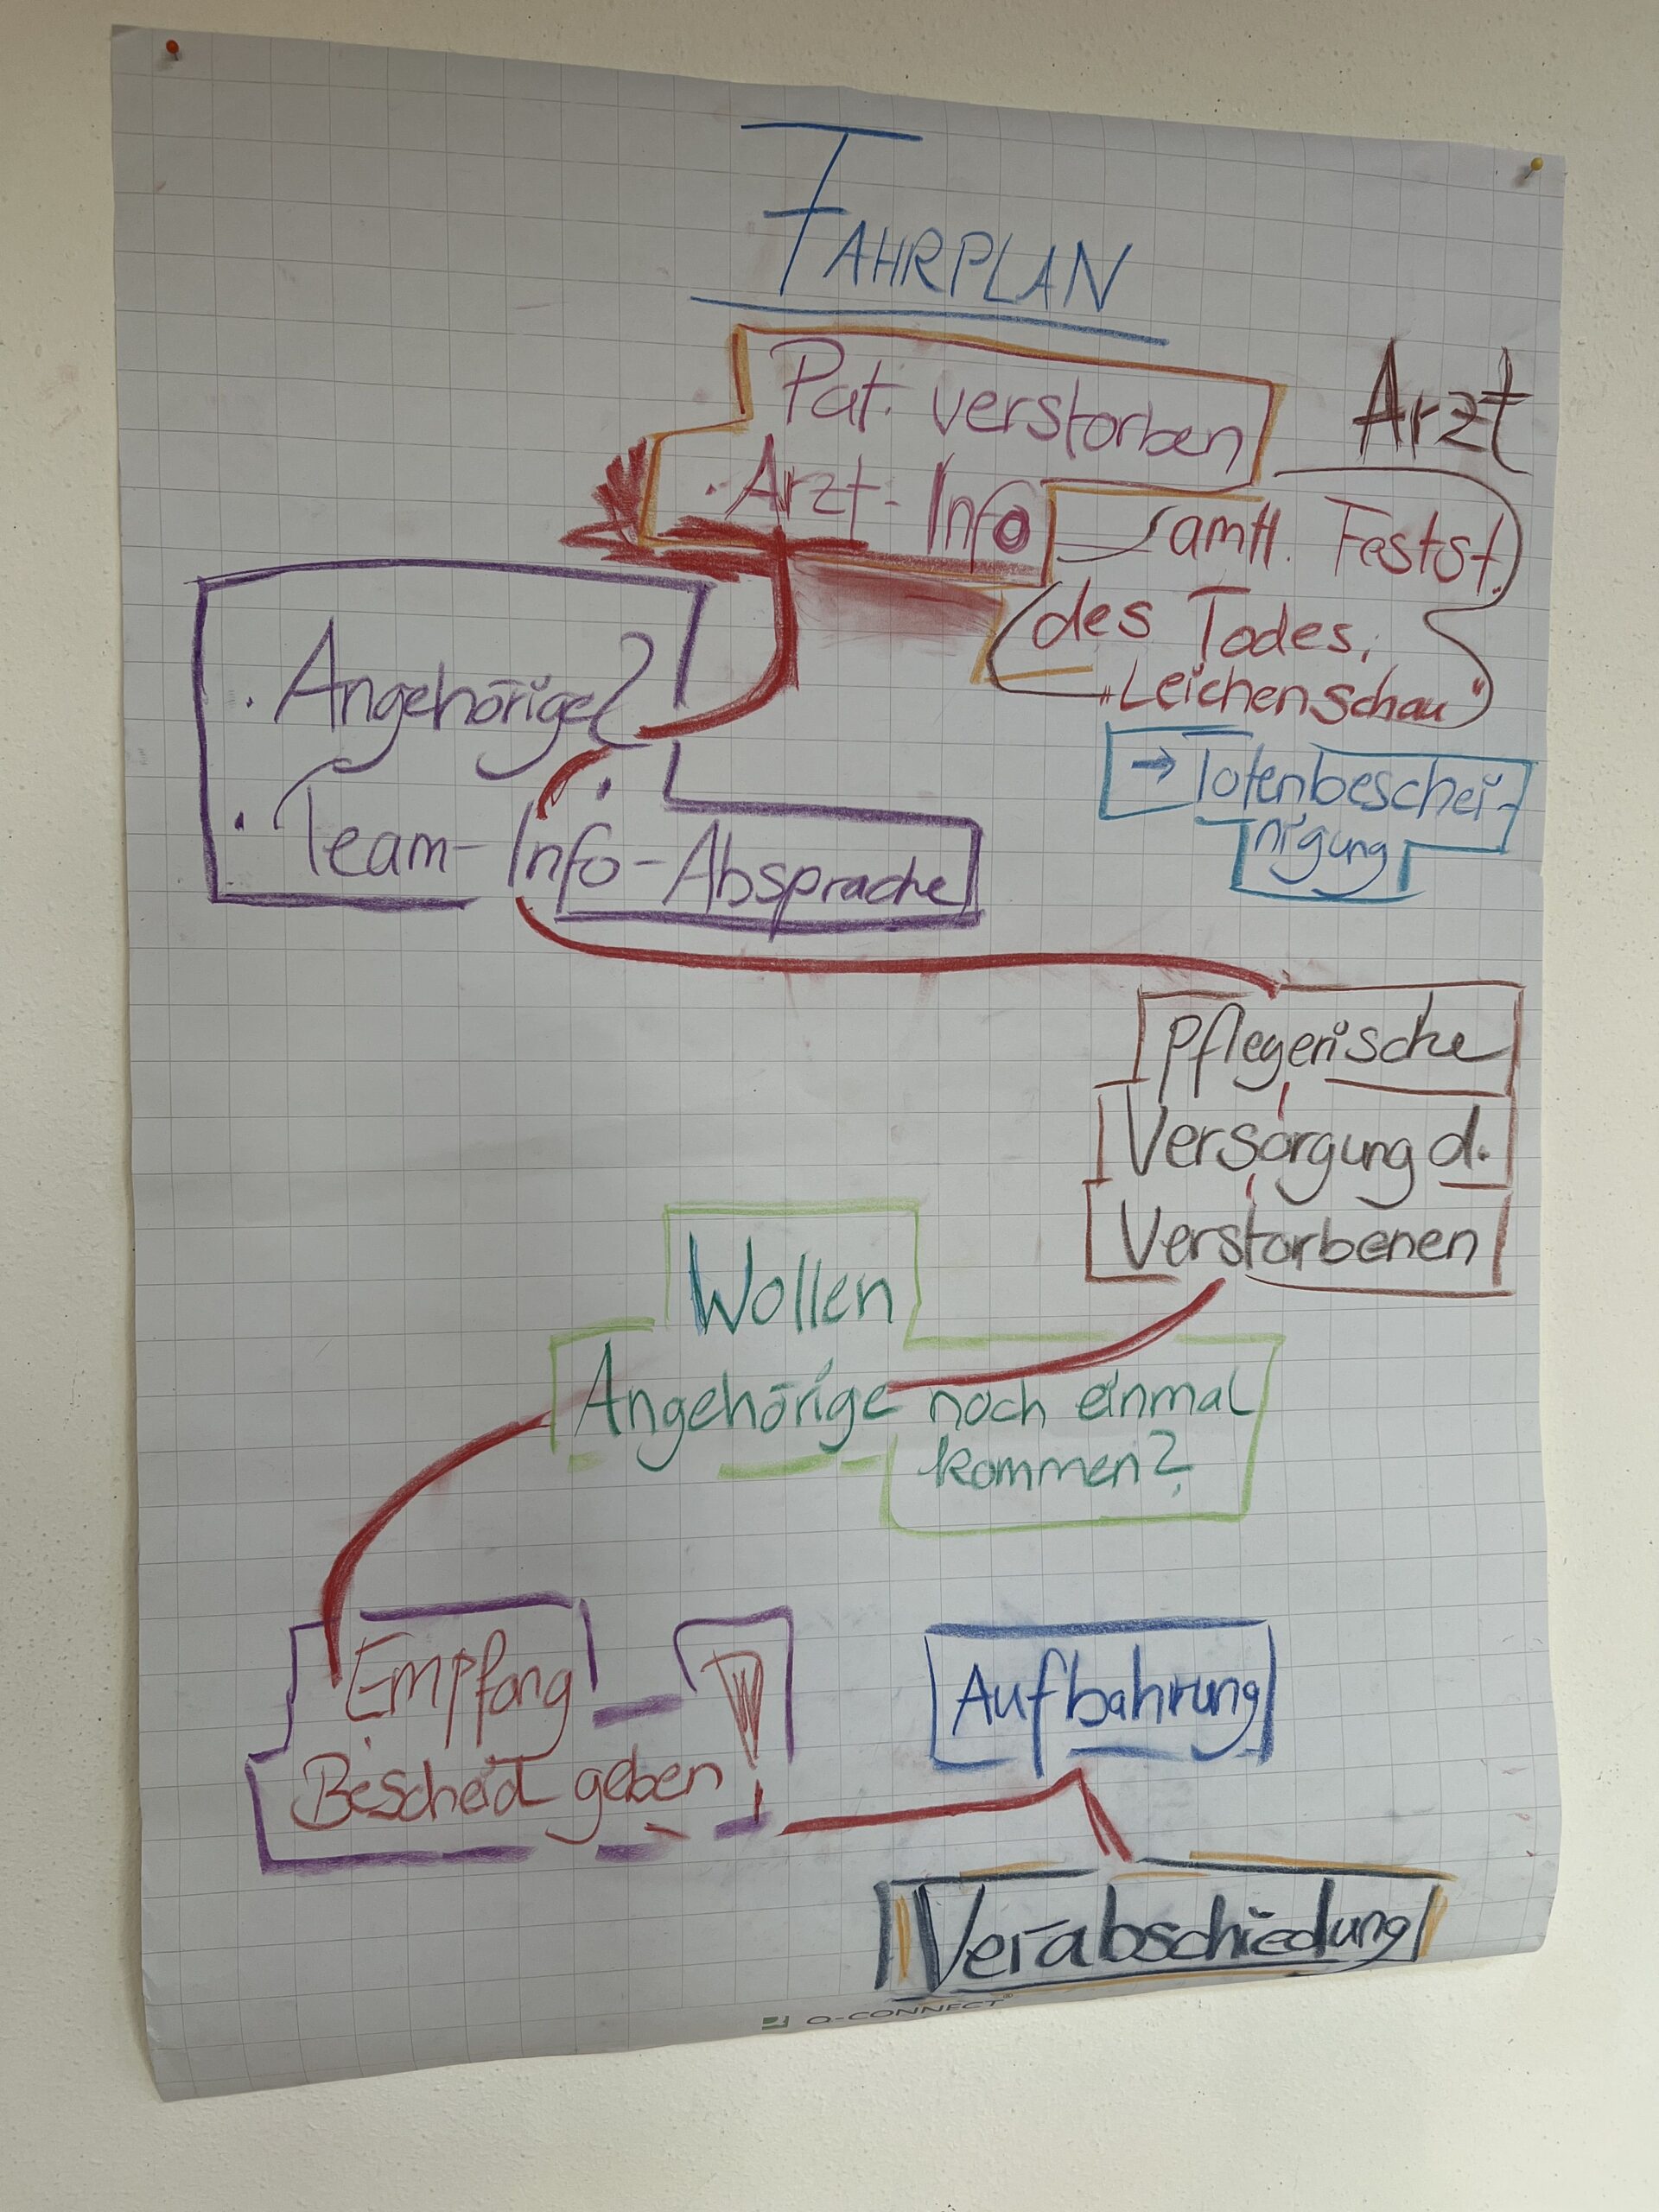 FAHRPLAN
Pat. verstorben
· Arzt-Info
Arzt
amtl. Festst.
des Todes,
"Leichenschau"
→ Totenbeschei-
nigung
· Angehörige?
· Team-Info-Absprache
Pflegerische
Versorgung d.
Verstorbenen
Wollen
Angehörige noch einmal
kommen?
Empfang
Bescheid geben !
Aufbahrung
Verabschiedung
Q-CONNECT®